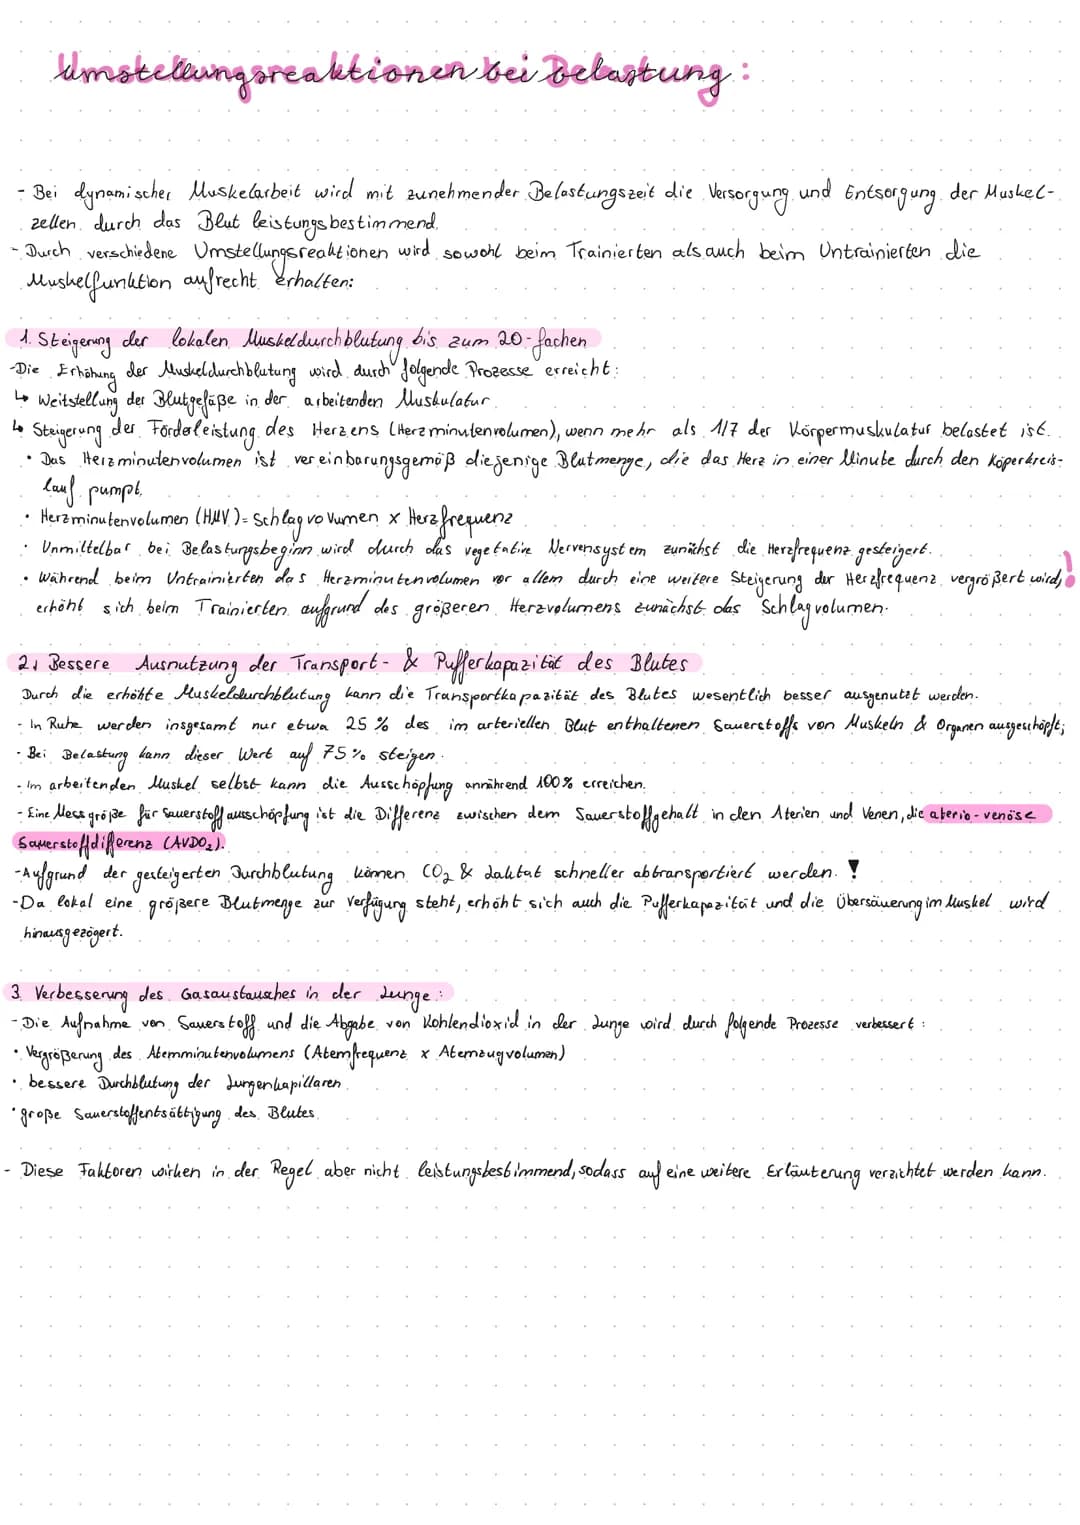 Umstellungsreaktionen bei Belastung:
- Bei dynamischer Muskelarbeit wird mit zunehmender Belastungszeit die Versorgung und Entsorgung der Muskel-
zellen durch das Blut leistungsbestimmend.
- Durch verschiedene Umstellungsreaktionen wird sowohl beim Trainierten als auch beim Untrainierten die
Muskelfunktion aufrecht erhalten:
1. Steigerung der lokalen Muskeldurchblutung bis zum 20-fachen
-Die Erhöhung der Muskeldurchblutung wird durch folgende Prozesse erreicht:
↳ Weitstellung der Blutgefäße in der arbeitenden Muskulatur
↳ Steigerung der Förderleistung des Herzens (Herzminutenvolumen), wenn mehr als 1/7 der Körpermuskulatur belastet ist.
• Das Herzminutenvolumen ist vereinbarungsgemäß diejenige Blutmenge, die das Herz in einer Minute durch den Köperkreis-
lauf pumpt.
• Herzminutenvolumen (HMV) = Schlagvovumen x Herzfrequenz
• Unmiltelbar bei Belastungsbeginn wird durch das vegetative Nervensystem zunächst die Herzfrequenz gesteigert.
• Während beim Untrainierten das Herzminutenvolumen vor allem durch eine weitere Steigerung der Herzfrequenz vergrößert wird, !
erhöht sich beim Trainierten aufgrund des größeren Herzvolumens zunächst das Schlagvolumen.
2. Bessere Ausnutzung der Transport- & Pufferkapazität des Blutes
Durch die erhöhte Muskeldurchblutung kann die Transportkapazität des Blutes wesentlich besser ausgenutzt werden.
- In Ruhe werden insgesamt nur etwa 25 % des im arteriellen Blut enthaltenen Sauerstoffs von Muskeln & Organen ausgeschöpft;
- Bei Belastung kann dieser Wert auf 75% steigen.
- Im arbeitenden Muskel selbst kann die Ausschöpfung annährend 100% erreichen.
- Eine Messgröße für Sauerstoffausschöpfung ist die Differenz zwischen dem Sauerstoffgehalt in den Aterien und Venen, die aterio-venöse
Sauerstoffdifferenz (AVDO₂).
-Aufgrund der gesteigerten Durchblutung können CO₂ & Laktat schneller abtransportiert werden. !
-Da lokal eine größere Blutmenge zur Verfügung steht, erhöht sich auch die Pufferkapazität und die Übersäuerung im Muskel wird
hinausgezögert.
3. Verbesserung des Gasaustausches in der Lunge:
- Die Aufnahme von Sauerstoff und die Abgabe von Kohlendioxid in der Lunge wird durch folgende Prozesse verbessert:
• Vergrößerung des Atemminutenvolumens (Atemfrequenz x Atemzugvolumen)
• bessere Durchblutung der Lungenkapillaren
• große Sauerstoffentsättigung des Blutes
- Diese Faktoren wirken in der Regel aber nicht leistungsbestimmend, sodass auf eine weitere Erläuterung verzichtet werden kann.